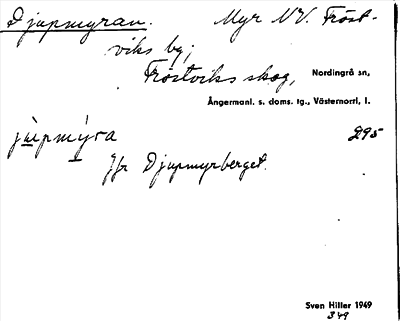 Djupmyran. Myr NV. Fröst-
viks by;
Fröstviks skog, Nordingrå sn,
Ångermanl. s. doms. tg., Västernorrl. l.
jùpmýra 295
Jfr Djupmyrberget.
Sven Hiller 1949
349